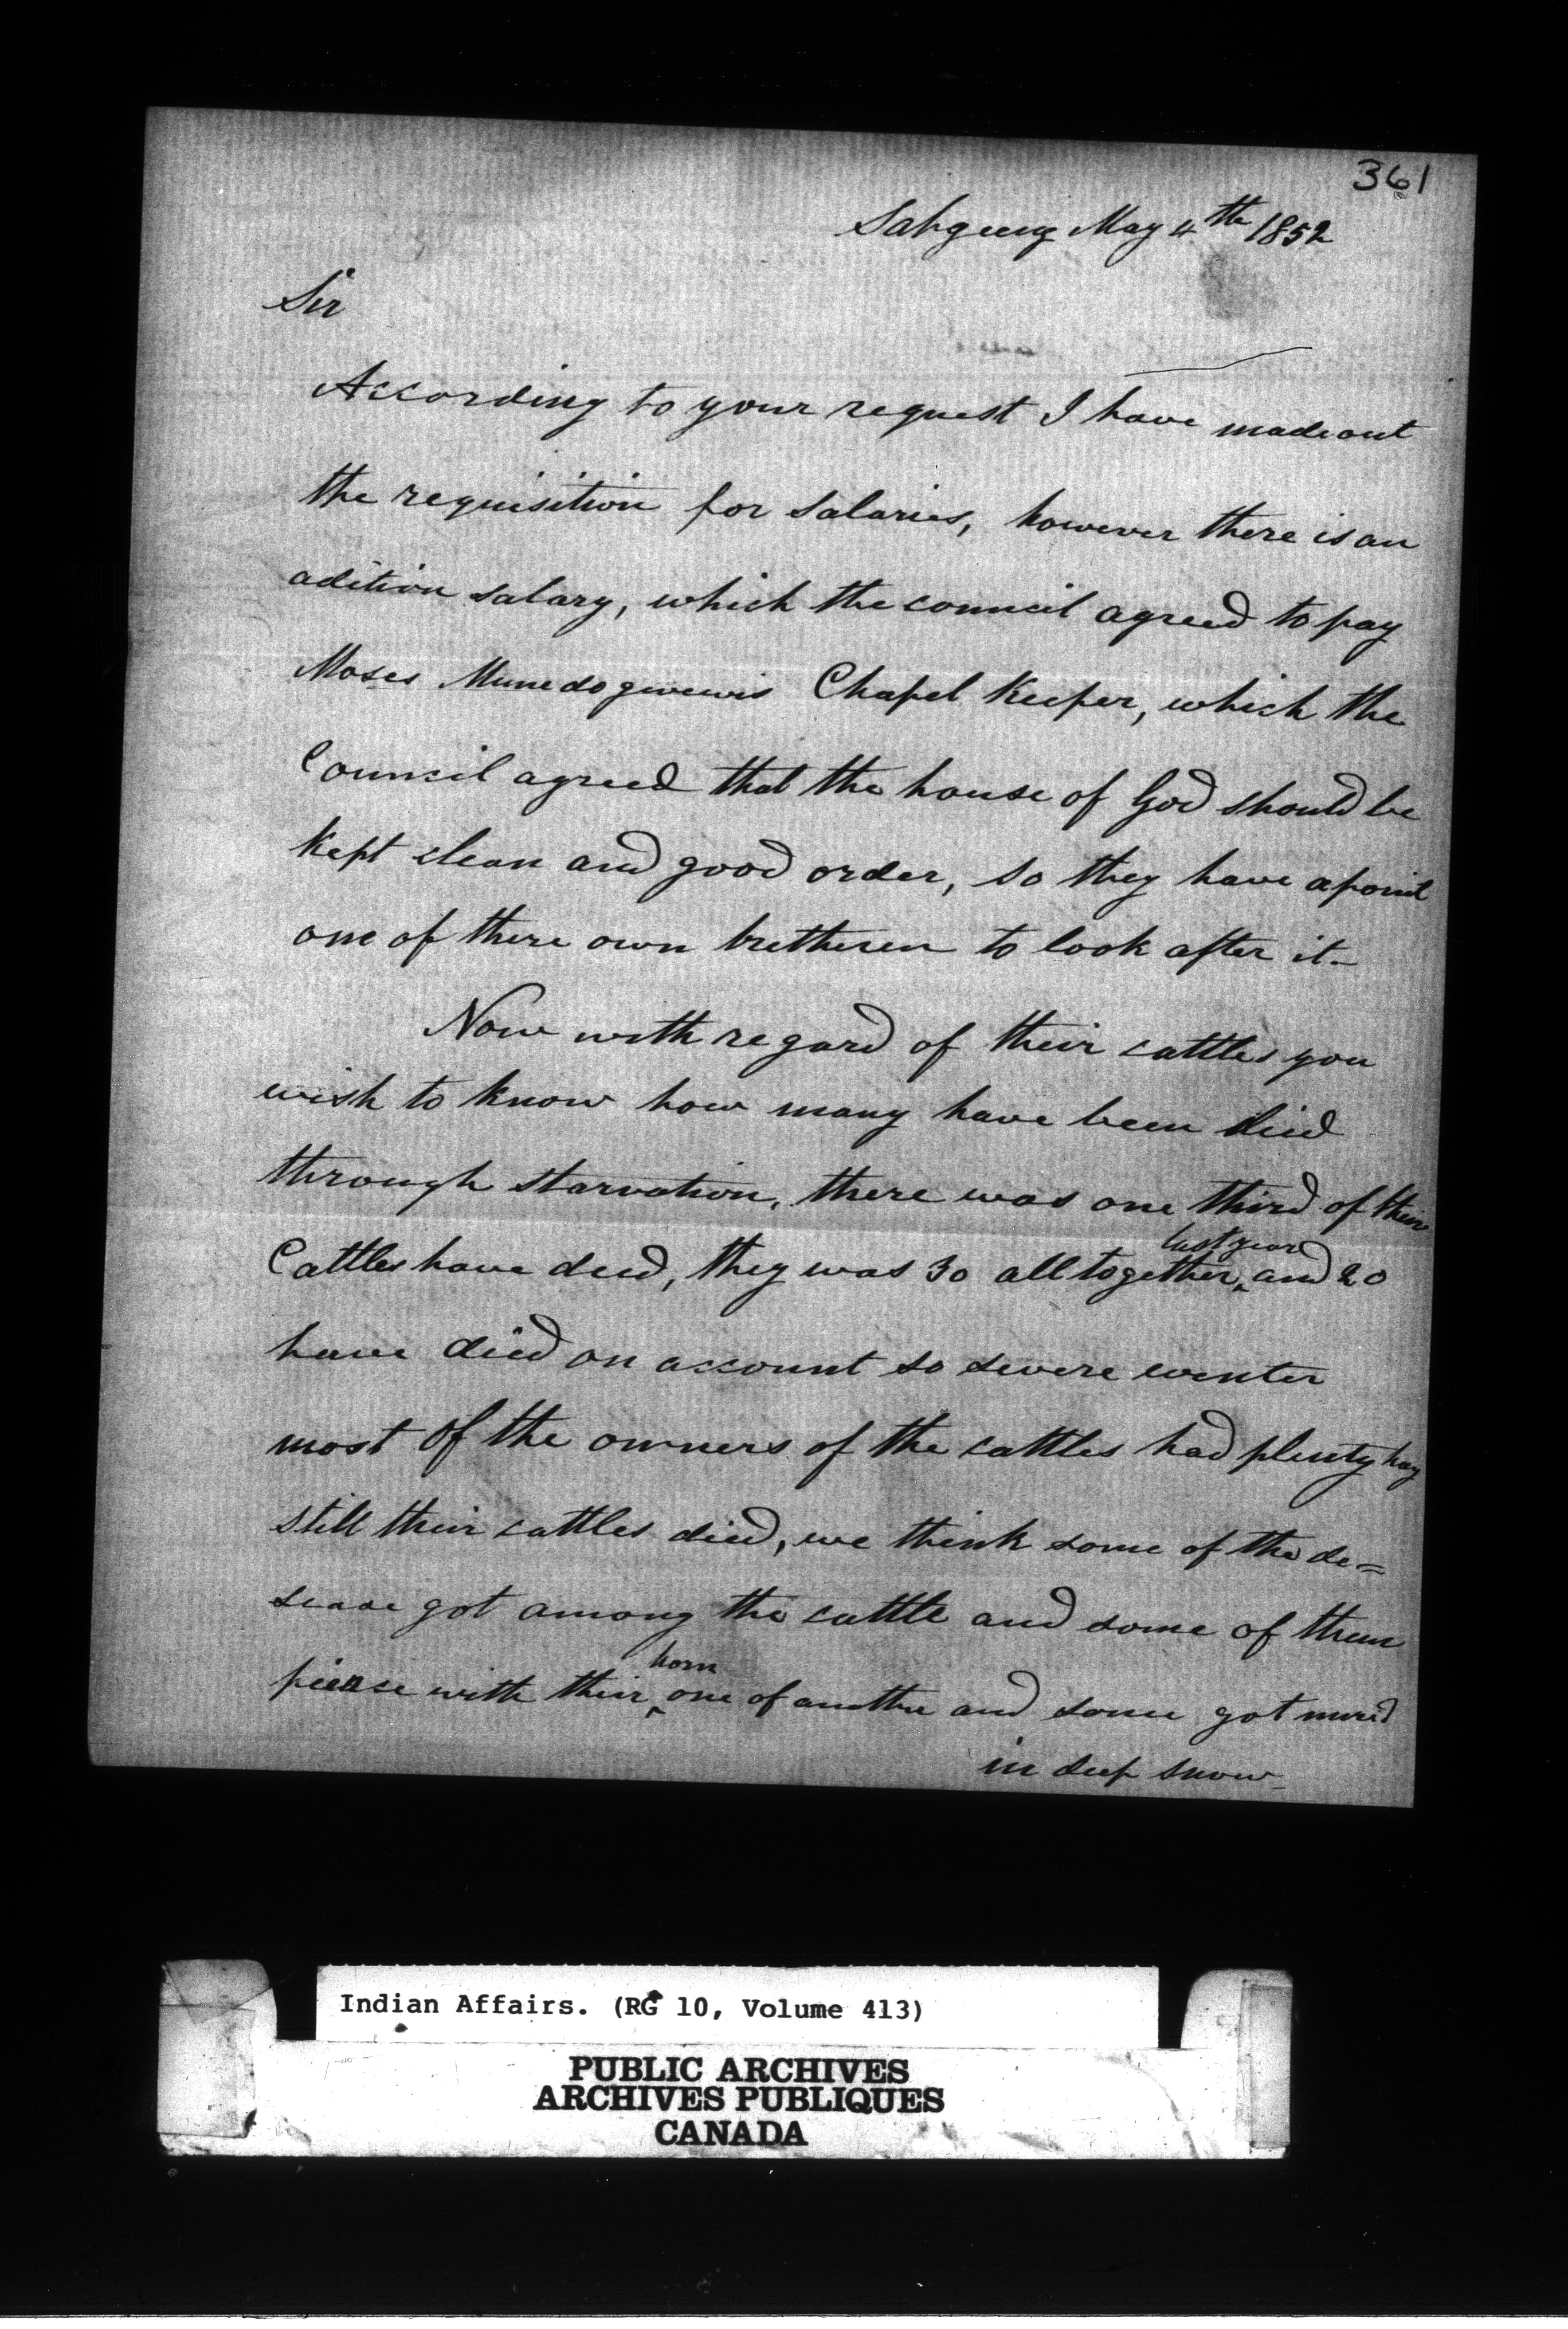 361
Sahgeeng May 4th 1852
Sir
According to your request I have made out
the requisition for salaries, however there is an
adition salary, which the council agreed to pay
Moses Munedogwewis Chapel Keeper, which the
Council agreed that the house of God should be
kept clean and good order, so they have apoint
one of there own bretheren to look after it-
Now with regard of their cattles you
wish to know how many have been died
through starvation, there was one third of their
last year
Cattles have died, they was 30 all together ^ and 20
have died on account so severe winter
most of the owners of the cattles had plenty hay
still their cattles died, we think some of the de=
sease got among the cattle and some of them
horn
pierse with their ^ one of another and some got mired
in deep snow-
Indian Affairs. (RG 10, Volume 413)
PUBLIC ARCHIVES
ARCHIVES PUBLIQUES
CANADA